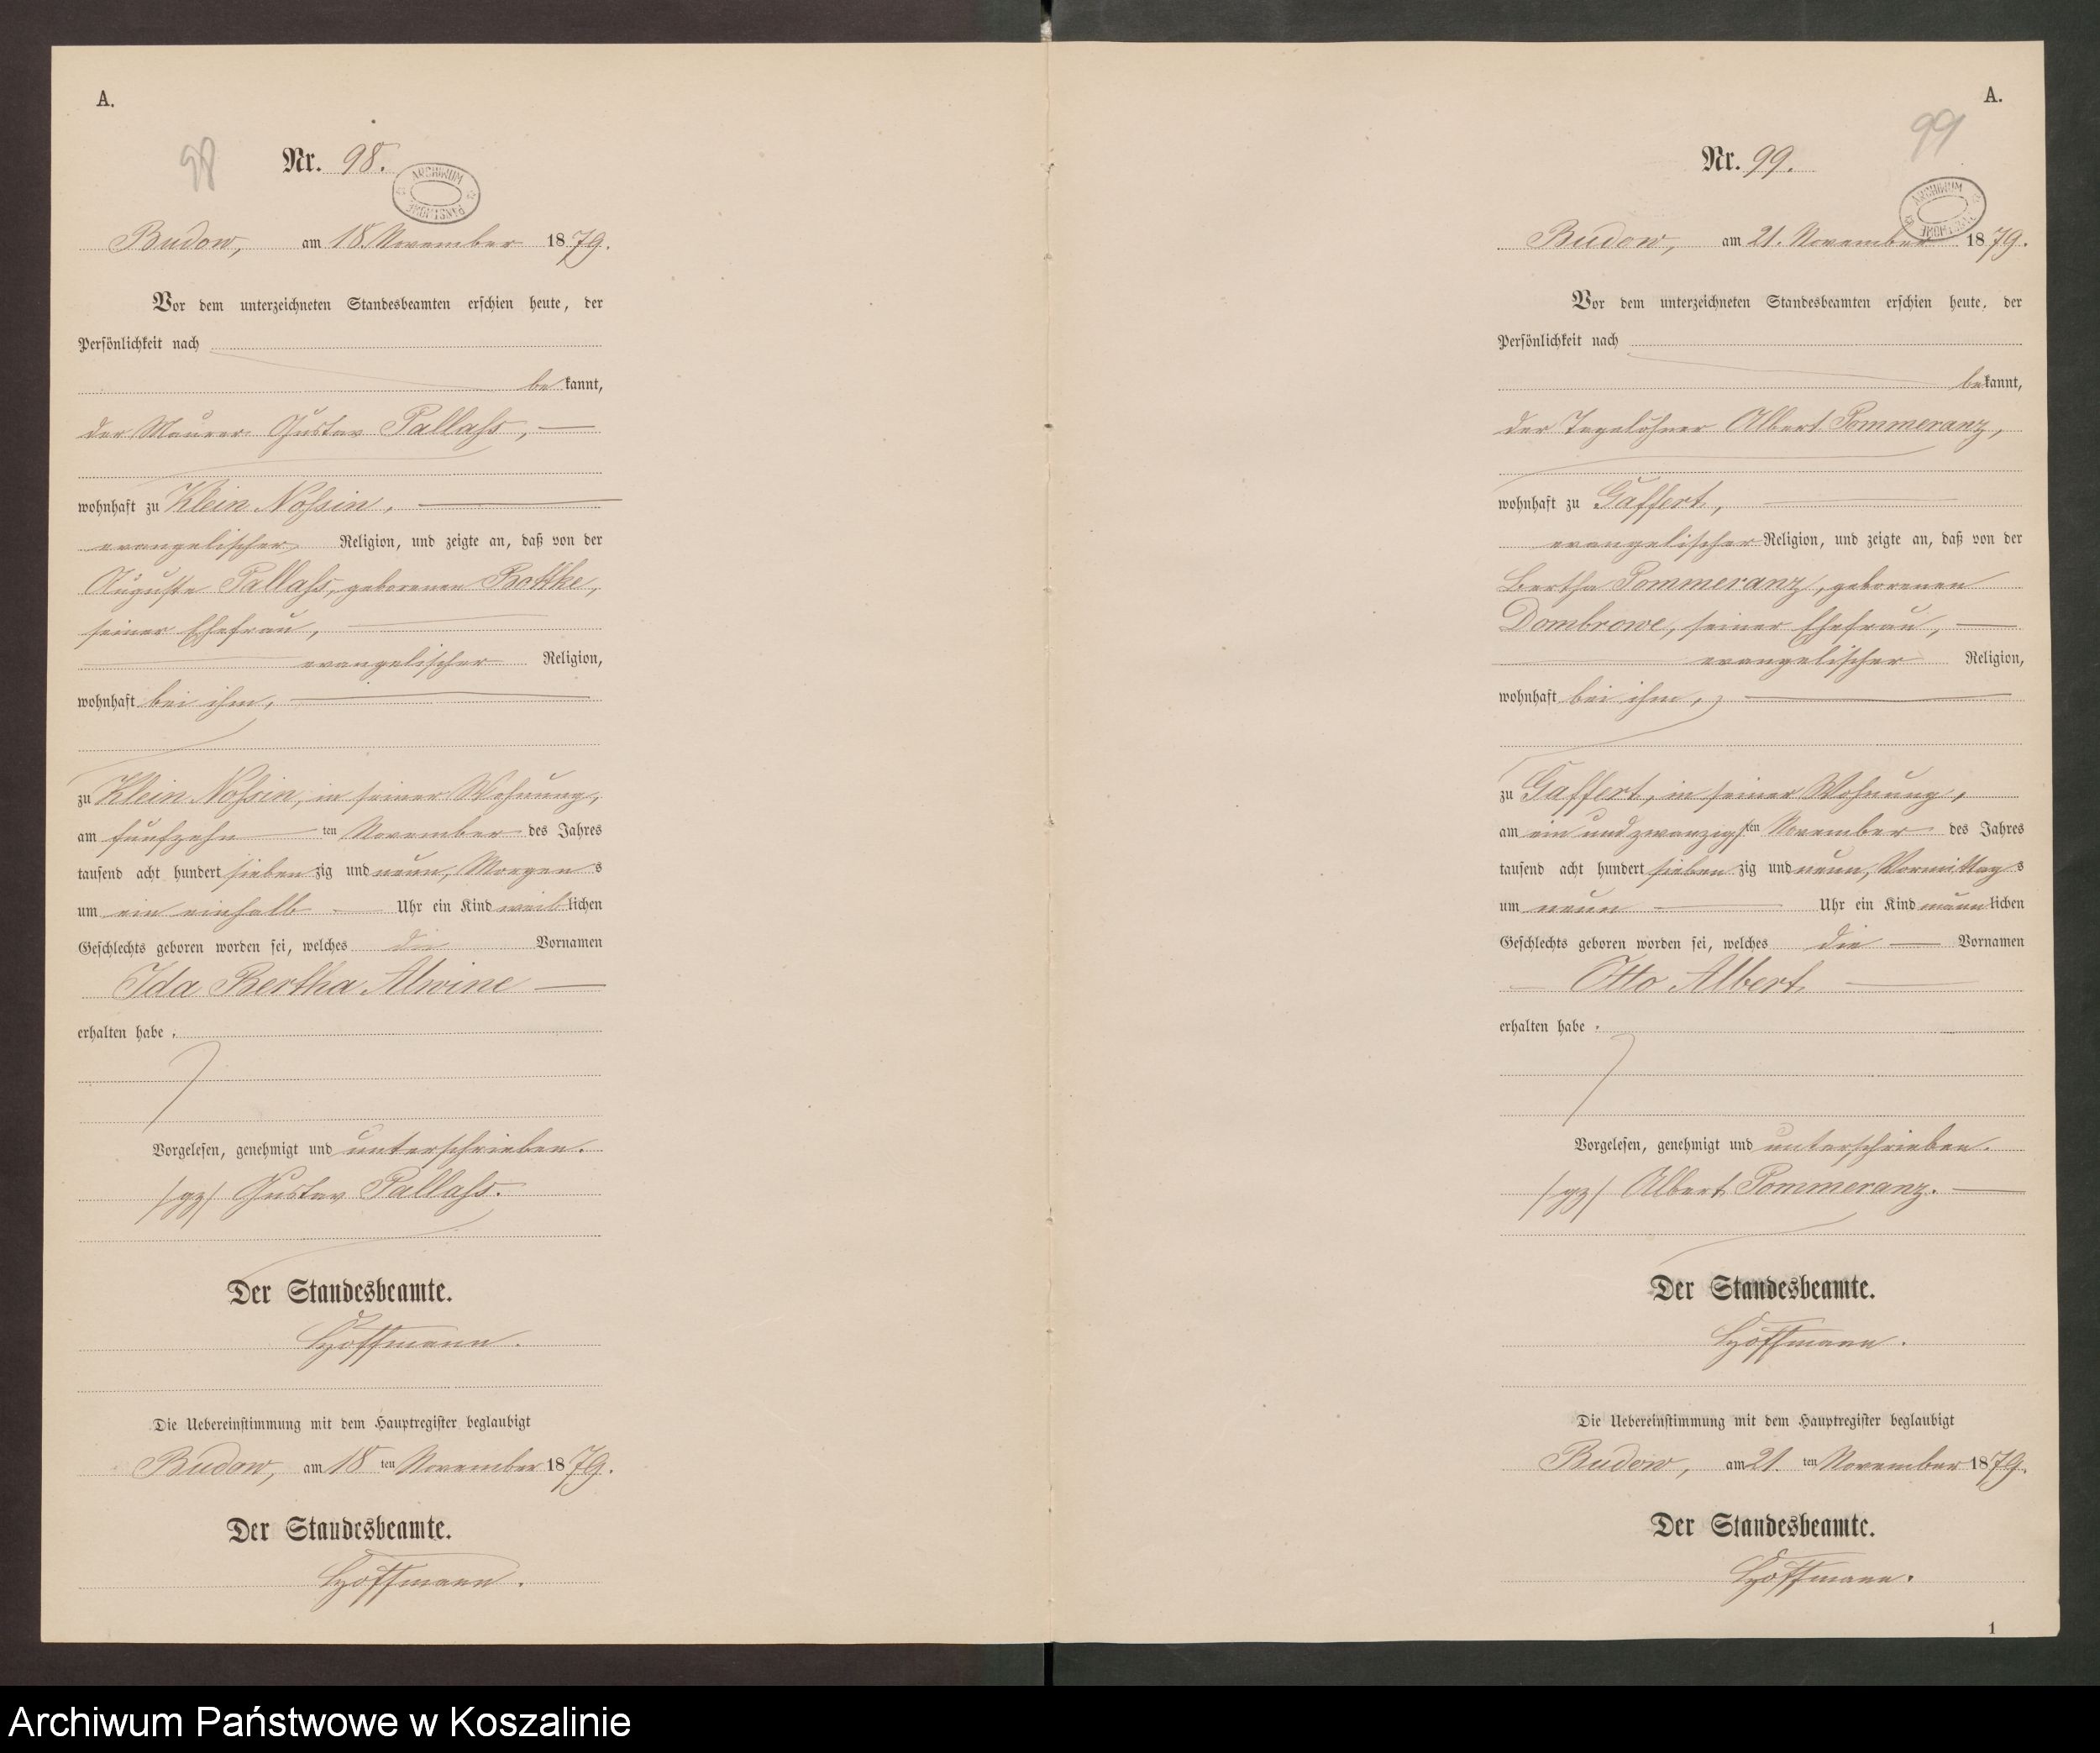 A.
98
Nr. 98.
ARCHIWUM PAŃSTWOWE
Budow, am 18. November 1879.
Vor dem unterzeichneten Standesbeamten erschien heute, der
Persönlichkeit nach
bekannt,
der Maurer Gustav Pallaß,
wohnhaft zu Klein Noßin,
evangelischer Religion, und zeigte an, daß von der
Auguste Pallaß, geborenen Bottke,
seiner Ehefrau,
evangelischer Religion,
wohnhaft bei ihm,
zu Klein Noßin, in seiner Wohnung,
am fünfzehnten November des Jahres
tausend acht hundert siebenzig und neun, Morgens
um ein einhalb Uhr ein Kind weiblichen
Geschlechts geboren worden sei, welches die Vornamen
Ida Bertha Alwine
erhalten habe.
Vorgelesen, genehmigt und unterschrieben.
/gz/ Gustav Pallaß.
Der Standesbeamte.
Hoffmann.
Die Uebereinstimmung mit dem Hauptregister beglaubigt
Budow, am 18ten November 1879.
Der Standesbeamte.
Hoffmann.
A.
99
Nr. 99.
ARCHIWUM PAŃSTWOWE
Budow, am 21. November 1879.
Vor dem unterzeichneten Standesbeamten erschien heute, der
Persönlichkeit nach
bekannt,
der Tagelöhner Albert Pommeranz,
wohnhaft zu Gaffert,
evangelischer Religion, und zeigte an, daß von der
Bertha Pommeranz, geborenen
Dombrowe, seiner Ehefrau,
evangelischer Religion,
wohnhaft bei ihm,
zu Gaffert, in seiner Wohnung,
am ein und zwanzigsten November des Jahres
tausend acht hundert siebenzig und neun, Vormittags
um neun Uhr ein Kind männlichen
Geschlechts geboren worden sei, welches die Vornamen
Otto Albert
erhalten habe.
Vorgelesen, genehmigt und unterschrieben.
/gz/ Albert Pommeranz.
Der Standesbeamte.
Hoffmann.
Die Uebereinstimmung mit dem Hauptregister beglaubigt
Budow, am 21.ten November 1879.
Der Standesbeamte.
Hoffmann.
1
Archiwum Państwowe w Koszalinie